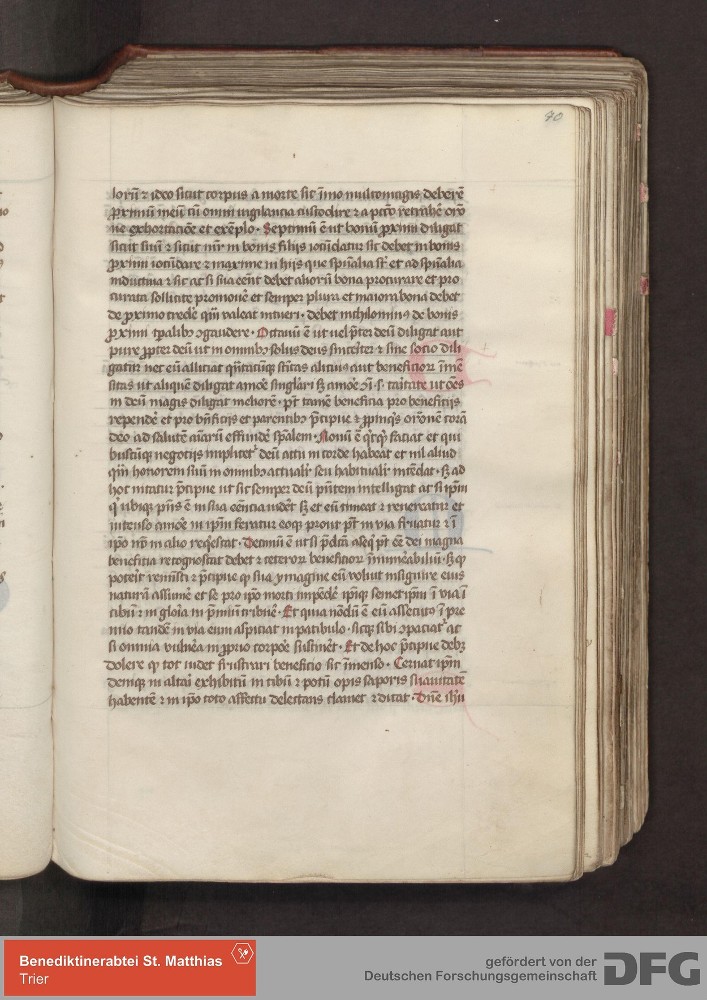 70
loru᷈ ⁊ ideo sicut corpus a morte sic i᷈mo multomagis debere᷈
p͛ximu᷈ meu᷈ cu᷈ omni vigilancia custodire ⁊ a pcc͛o retrahe᷈ or͛o
ne exhortac͛oe᷈ et exe᷈plo · Septimu᷈ e᷈ ut bonu᷈ p͛ximi diligat
sicut suu᷈ ⁊ sicut mr͛ in bonis filijs iocu᷈datur sic debet in bonis
p͛ximi iocu᷈dare ⁊ maxime in hijs que sp͛ualia st᷈ et ad sp͛ualia
inductiua ⁊ sic ac si sua ee᷈nt debet alioru᷈ bona procurare et pro
curata sollicite promoue᷈ et semper plura et maiora bona debet
de p͛ximo crede᷈ qua᷈ valeat intueri · debet nichilominus de bonis
p͛ximi t͛palibꝫ ↄgaudere · Octauu᷈ e᷈ ut uel p͛ter deu᷈ diligat aut
pure p͛pter deu᷈ ut in omnibꝫ solus deus sinc͛iter ⁊ sine socio dili
gatur nec eu᷈ alliciat qua᷈titatu᷈qꝫ sc͛itas alicuius aut beneficior᷈ i᷈me᷈
sitas ut alique᷈ diligat amo͛e sing͛lari sꝫ amo͛e
in deu᷈ magis diligat meliore᷈ · p͛t tame᷈ beneficia pro beneficijs
repende᷈ et pro bn᷈ficijs et parentibꝫ p͛cipue ⁊ p͛pinq͛s oro᷈nem cora᷈
deo ad salute᷈ a᷈iaru᷈ effunde᷈ sp͛alem · Nonu᷈ e᷈ q͛cq͛d faciat et qui
buscu᷈qꝫ negocijs implicet͛ deu᷈ actu in corde habeat et nil aliud
qua᷈ honorem suu᷈ in omnibꝫ actuali͛ seu habituali͛ inte᷈dat · sꝫ ad
hoc nitatur p͛cipue ut sic semper deu᷈ p͛ntem intelligat ac si ip᷈m
q͛ ubiqꝫ p͛ns e᷈ in sua ee᷈ncia uide᷈t sꝫ et eu᷈ timeat ⁊ reuereatur et
intenso amo͛e in ip᷈m feratur eoqꝫ prout p͛t in via fruatur ⁊ i᷈
ip᷈o no᷈ in alio req͛escat · Decimu᷈ e᷈ ut si p͛dc͛a aseq͛ p͛t e᷈e dei magna
beneficia recognoscat debet ⁊ ceteror᷈ beneficior᷈ i᷈nume᷈abiliu᷈ · sꝫ qꝫ
poterit reminisci ⁊ p͛cipue qꝫ sua ymagine eu᷈ voluit insignire eius
natura᷈ assume᷈ et se pro ip᷈o morti impede᷈ ip᷈iqꝫ semetip᷈m i᷈ via i᷈
cibu᷈ ⁊ in glo͛ia in p͛miu᷈ tribue᷈ · Et quia no᷈du᷈ e᷈ eu᷈ assecut᷒ i᷈ pre
mio tande᷈ in via eum aspiciat in patibulo · sicqꝫ sibi ↄpaciat͛ ac
si omnia vulne᷈a in p͛prio corpo͛e sustine᷈t · Et de hoc p͛cipue debꝫ
dolere qꝫ tot uidet frustrari beneficio sic i᷈menso · Cernat ip᷈m
demqꝫ in altari exhibitu᷈ in cibu᷈ ⁊ potu᷈ opis saporis suauitate᷈
habente᷈ ⁊ in ip᷈o toto affectu delectans clamet ⁊ dicat · Dn᷈e ih͛u
Benediktinerabtei St. Matthias
Trier
gefördert von der
Deutschen Forschungsgemeinschaft
DFG